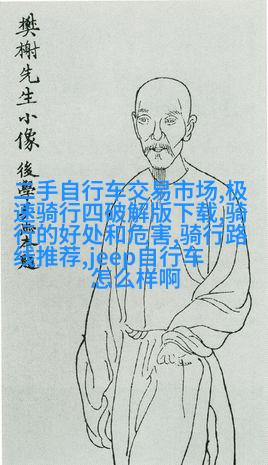 樊榭先生小像
後學
二手自行车交易市场,极
速骑行四破解版下载,骑
行的好处和危害,骑行路
线推荐,jeep自行车
怎么样啊